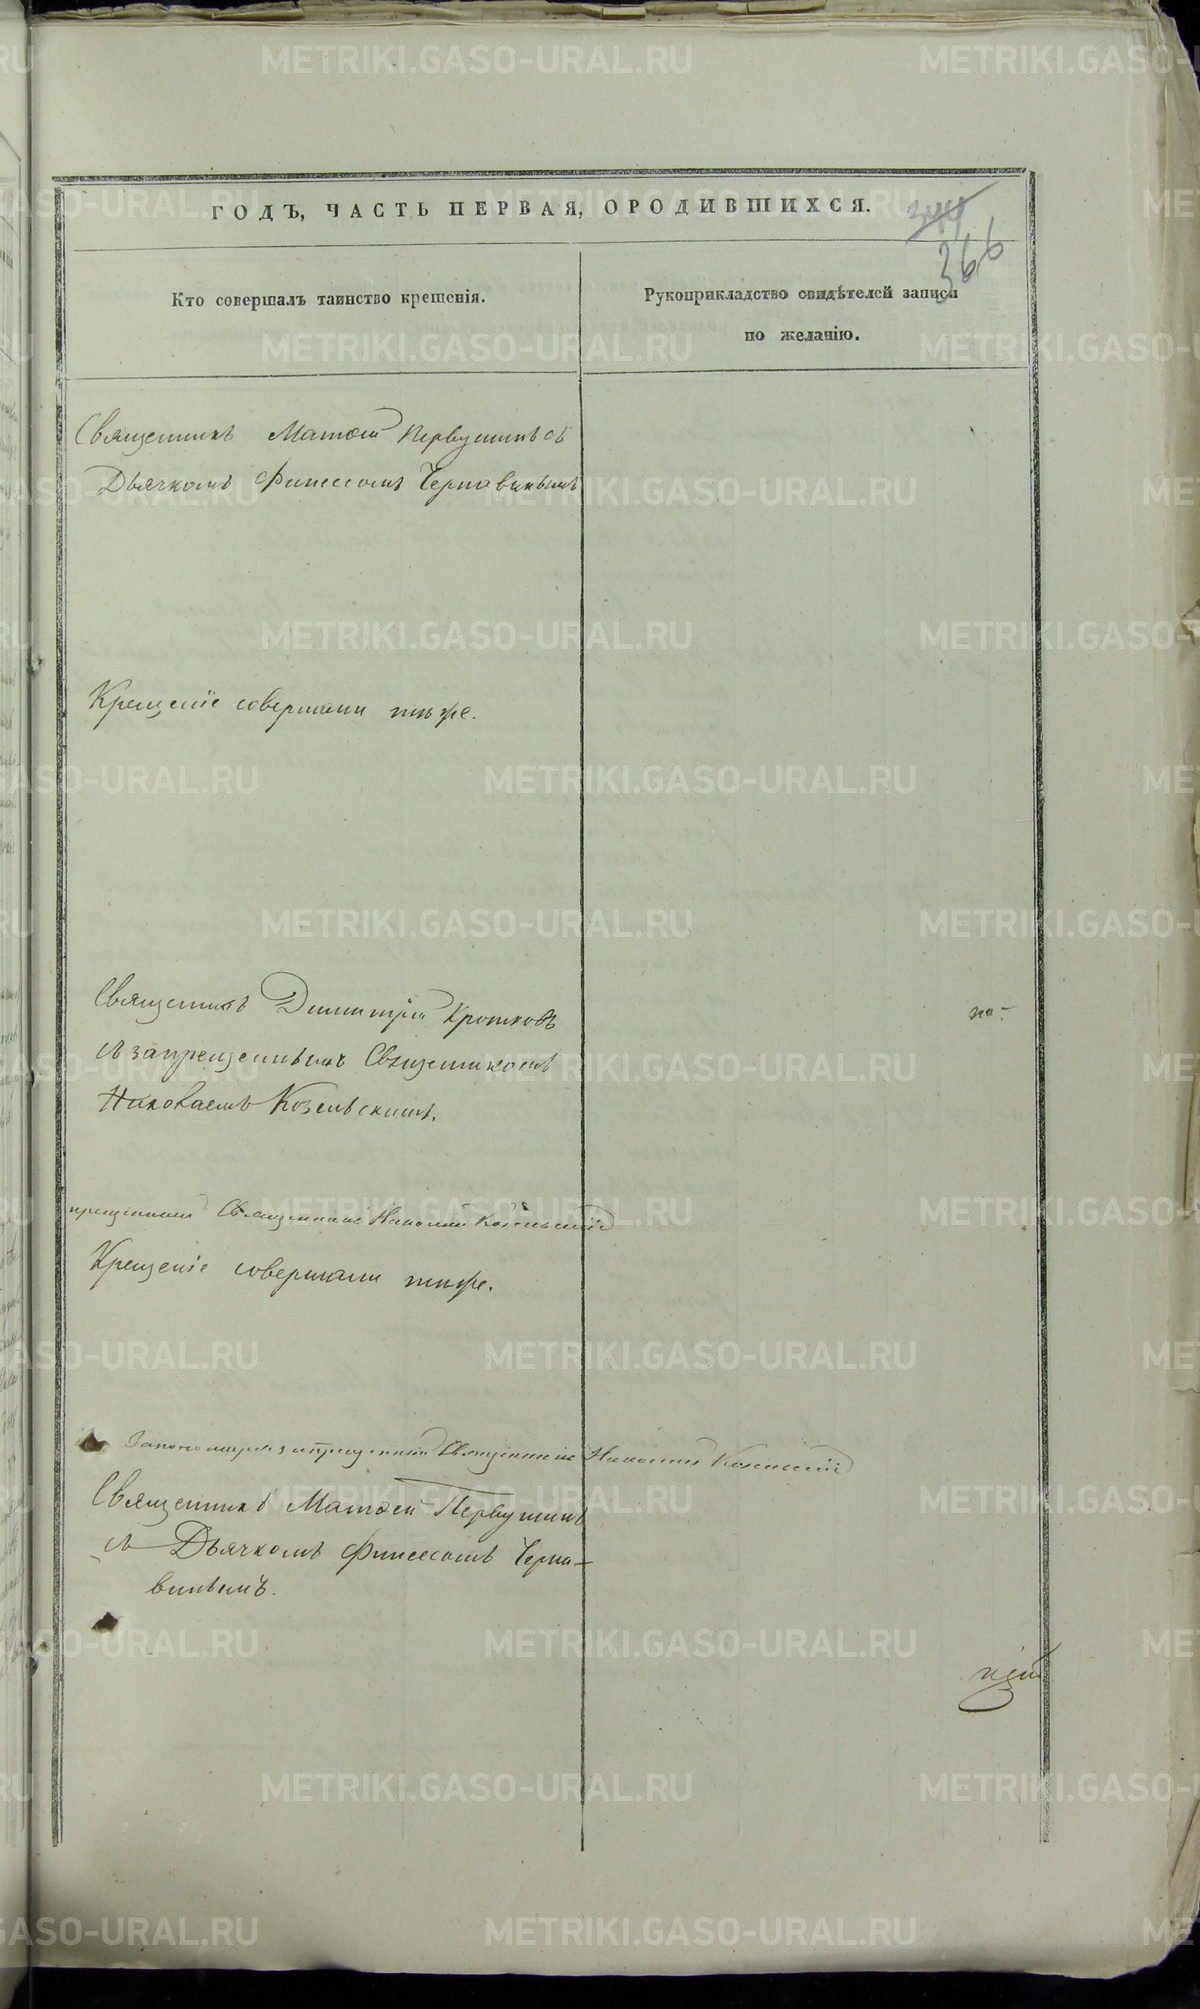 ГОДЪ, ЧАСТЬ ПЕРВАЯ, О РОДИВШИХСЯ.
344
366
Кто совершалъ таинство крещенія.
Рукоприкладство свидѣтелей записи
по желанію.
Священникъ Матѳей Первушинъ съ
Дьячкомъ Финеесомъ Чернавинымъ
Крещеніе совершали тѣже.
Священникъ Димитрій Кротковъ
съ запрещеннымъ Священникомъ
Николаемъ Козельскимъ.
но-
прещенный Священникъ Николай Козельскій
Крещеніе совершали тѣже.
запрещенный Священникъ Николай Козельскій
Священникъ Матѳей Первушинъ
съ Дьячкомъ Финеесомъ Черна-
винымъ.
METRIKI.GASO-URAL.RU